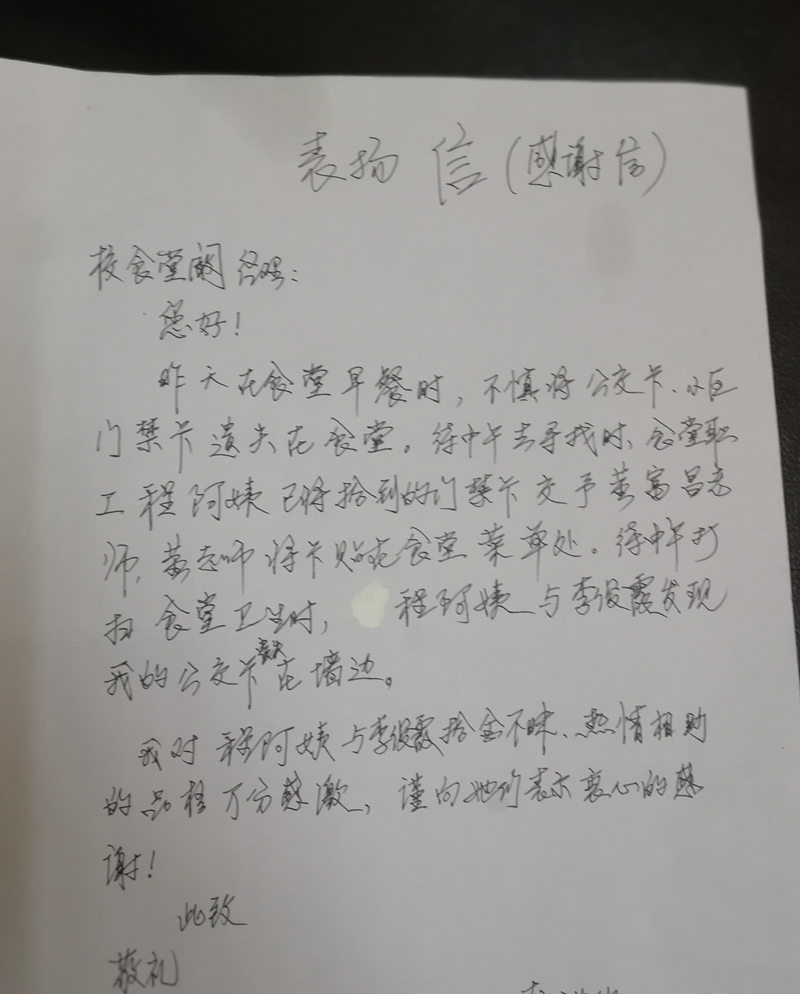 表扬信(感谢信)
校食堂阚经理:
您好!
昨天在食堂早餐时,不慎将公交卡、小区
门禁卡遗失在食堂。待中午去寻找时、食堂职
工程阿姨已将拾到的门禁卡交予黄富昌老
师,黄老师将卡贴在食堂菜单处。待中午打
扫食堂卫生时,程阿姨与李俊霞发现
我的公交卡丢失在墙边。
我对程阿姨与李俊霞拾金不昧、热情相助
的品格万分感激,谨向她们表示衷心的感
谢!
此致
敬礼